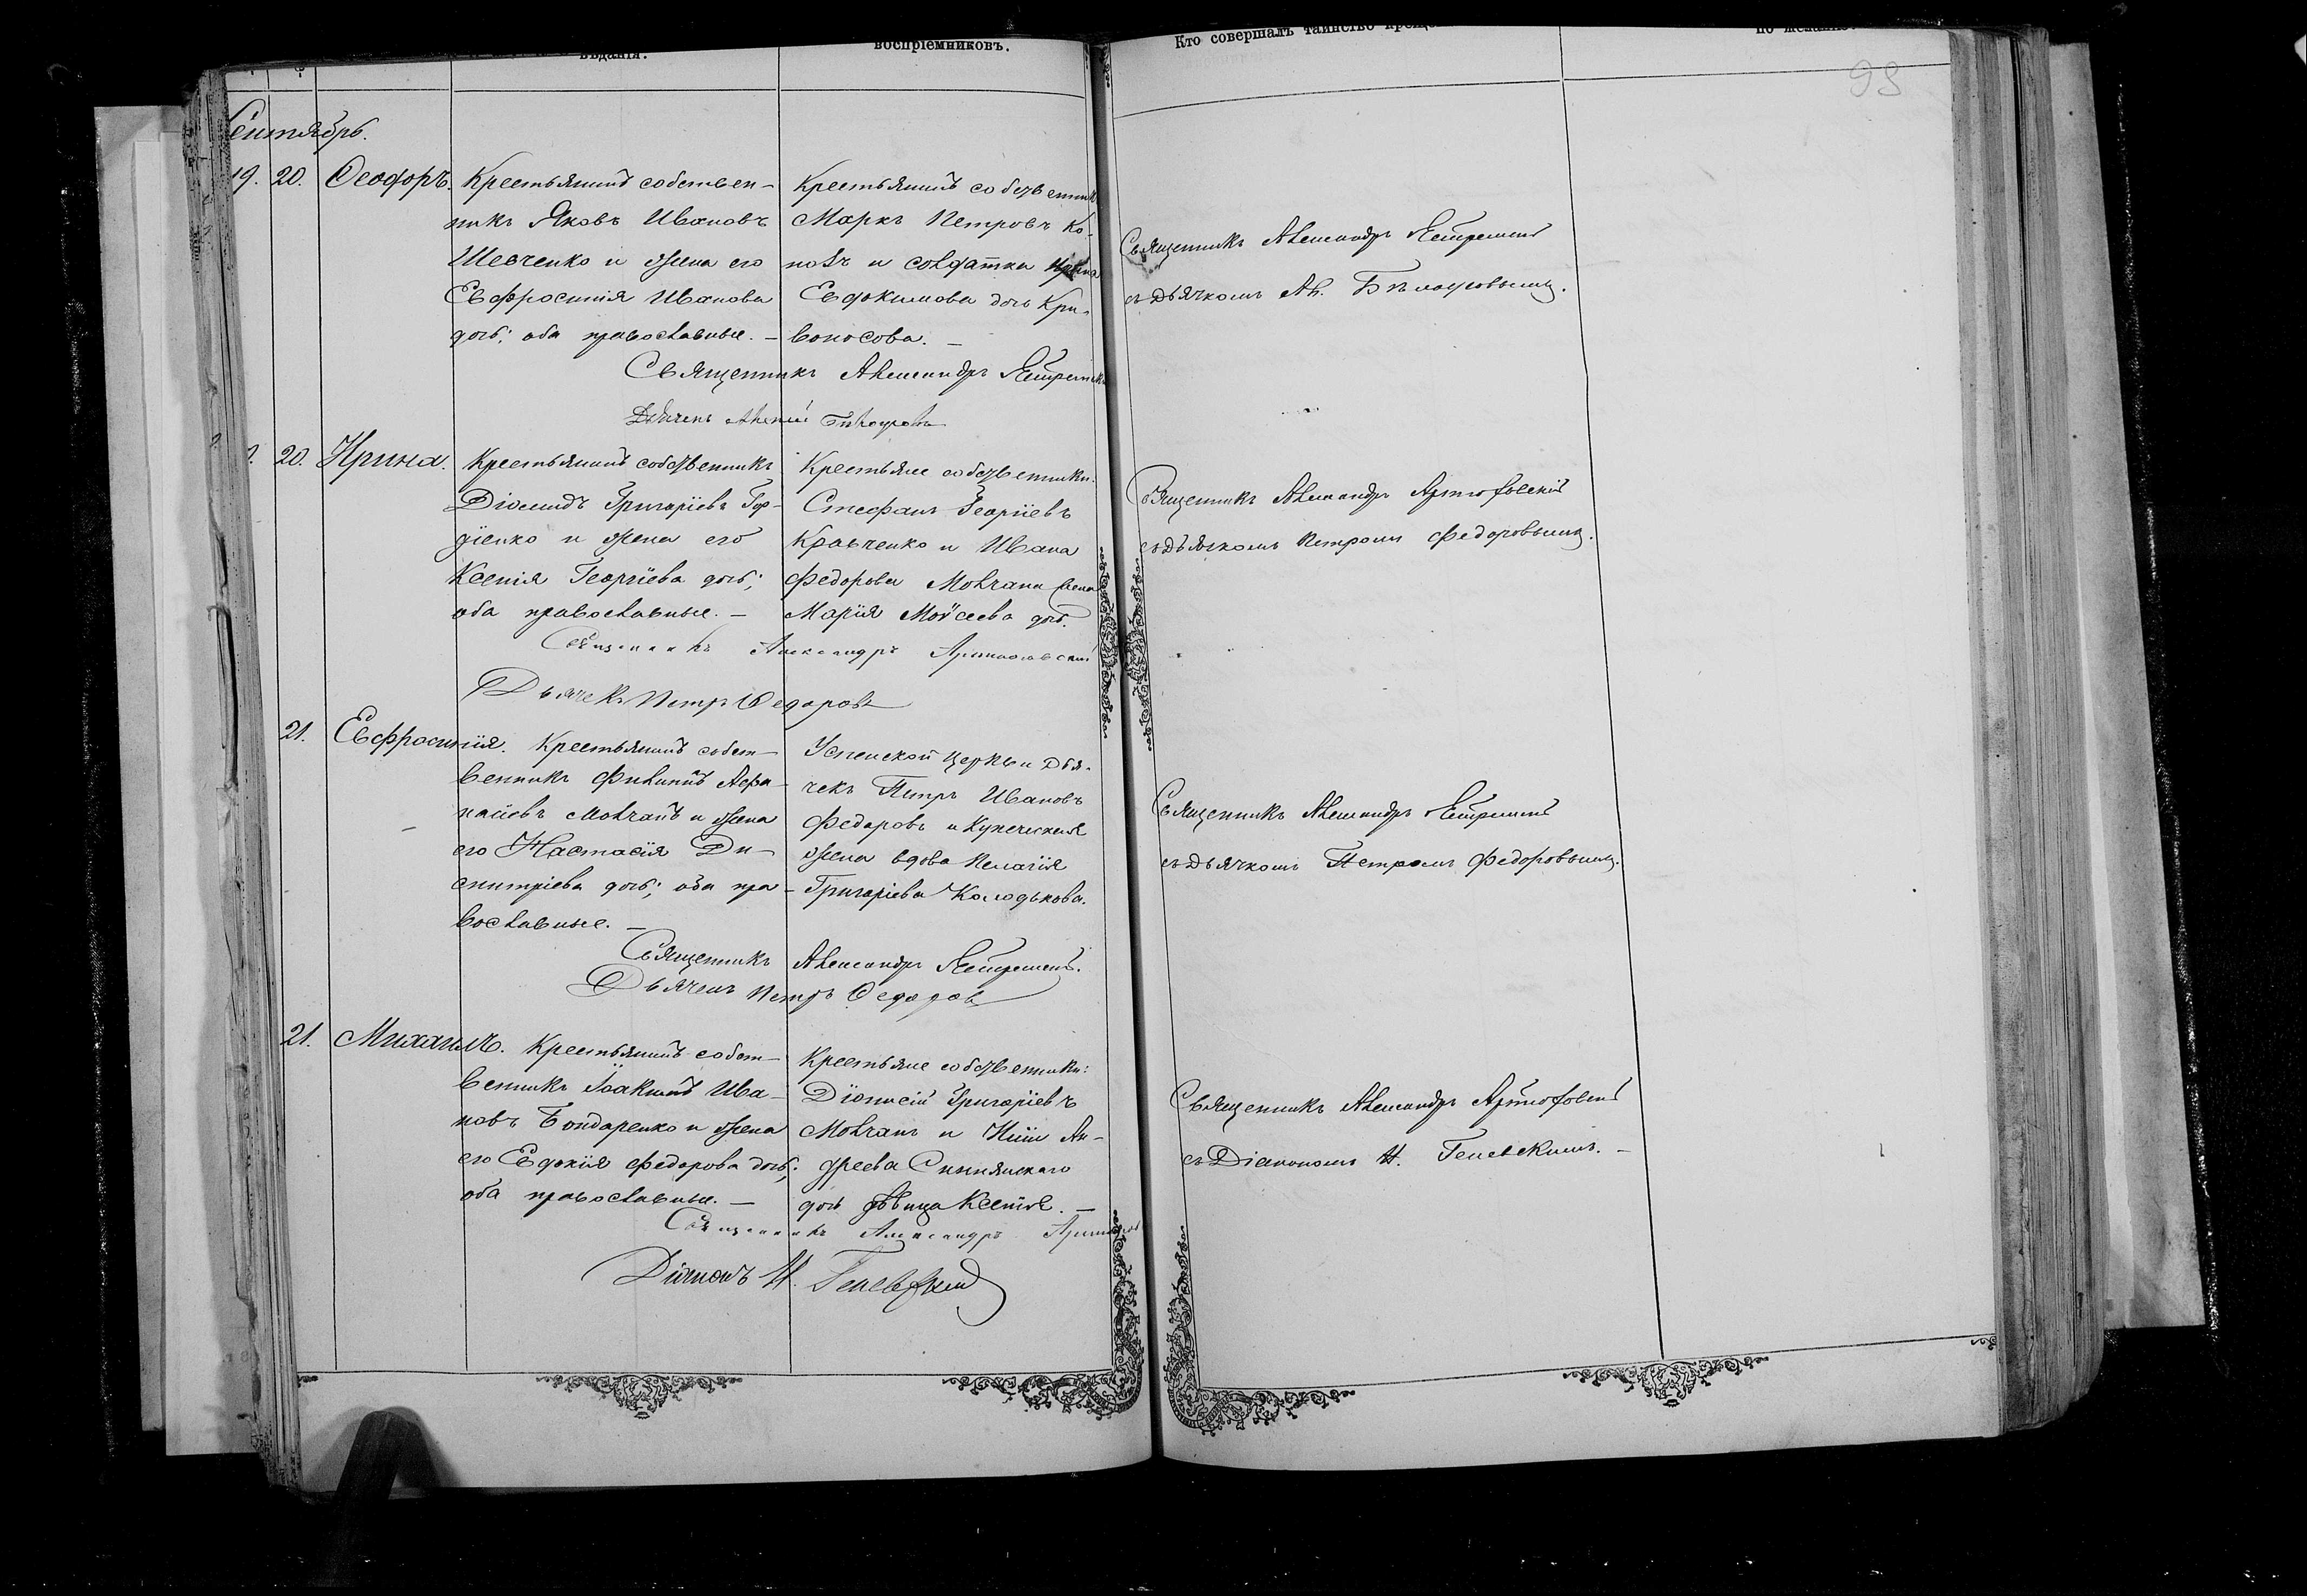 вѣданія.
воспріемниковъ.
Кто совершалъ таинство
по
93
Сентябрь.
19. 20. Ѳеодоръ. Крестьянинъ собствен-
никъ Яковъ Ивановъ
Шевченко и жена его
Евфросинія Иванова
дочь; оба православные. –
Крестьянинъ собственник
Маркъ Петровъ Ко-
и солдатка
Евдокимова дочь Кри-
воносова. –
Священникъ Александръ
Дьячекъ
Священникъ Александръ
съ дьячкомъ
20. Ирина. Крестьянинъ собственникъ
Діомидъ Григоріевъ Гор-
діенко и жена его
Ксенія Георгіева дочь;
оба православные. –
Крестьяне собственники:
Стефанъ Георгіевъ
Кравченко и Ивана
Федорова Молчана жена
Марія Моѵсеева дочь.
Священникъ Александръ Артюховскій
Дьячекъ Петръ Ѳедоровъ
Священникъ Александръ Артюховскій
съ дьячкомъ Петромъ Федоровымъ.
21. Евфросинія. Крестьянинъ собст-
венникъ Филиппъ Афа-
насіевъ Молчанъ и жена
его Настасія Ди-
митріева дочь; оба пра-
вославные. –
Успенской церкви Дья-
чекъ Петръ Ивановъ
Федоровъ и Купеческая
жена вдова Пелагія
Григоріева Колодькова.
Священникъ Александръ
Дьячекъ Петръ Ѳедоровъ
Священникъ Александръ
съ дьячкомъ Петромъ Федоровымъ.
21. Михаилъ. Крестьянинъ собст-
венникъ Іоакимъ Ива-
новъ Бондаренко и жена
его Евдокія Федорова дочь;
оба православные. –
Крестьяне собственники:
Діонисій Григоріевъ
Молчанъ и Ан-
дреева Синянскаго
дочь дѣвица Ксенія. –
Священникъ Александръ
Діаконъ И. Геневскій
Священникъ Александръ Артюховскій
съ Діакономъ И. Геневскимъ. –